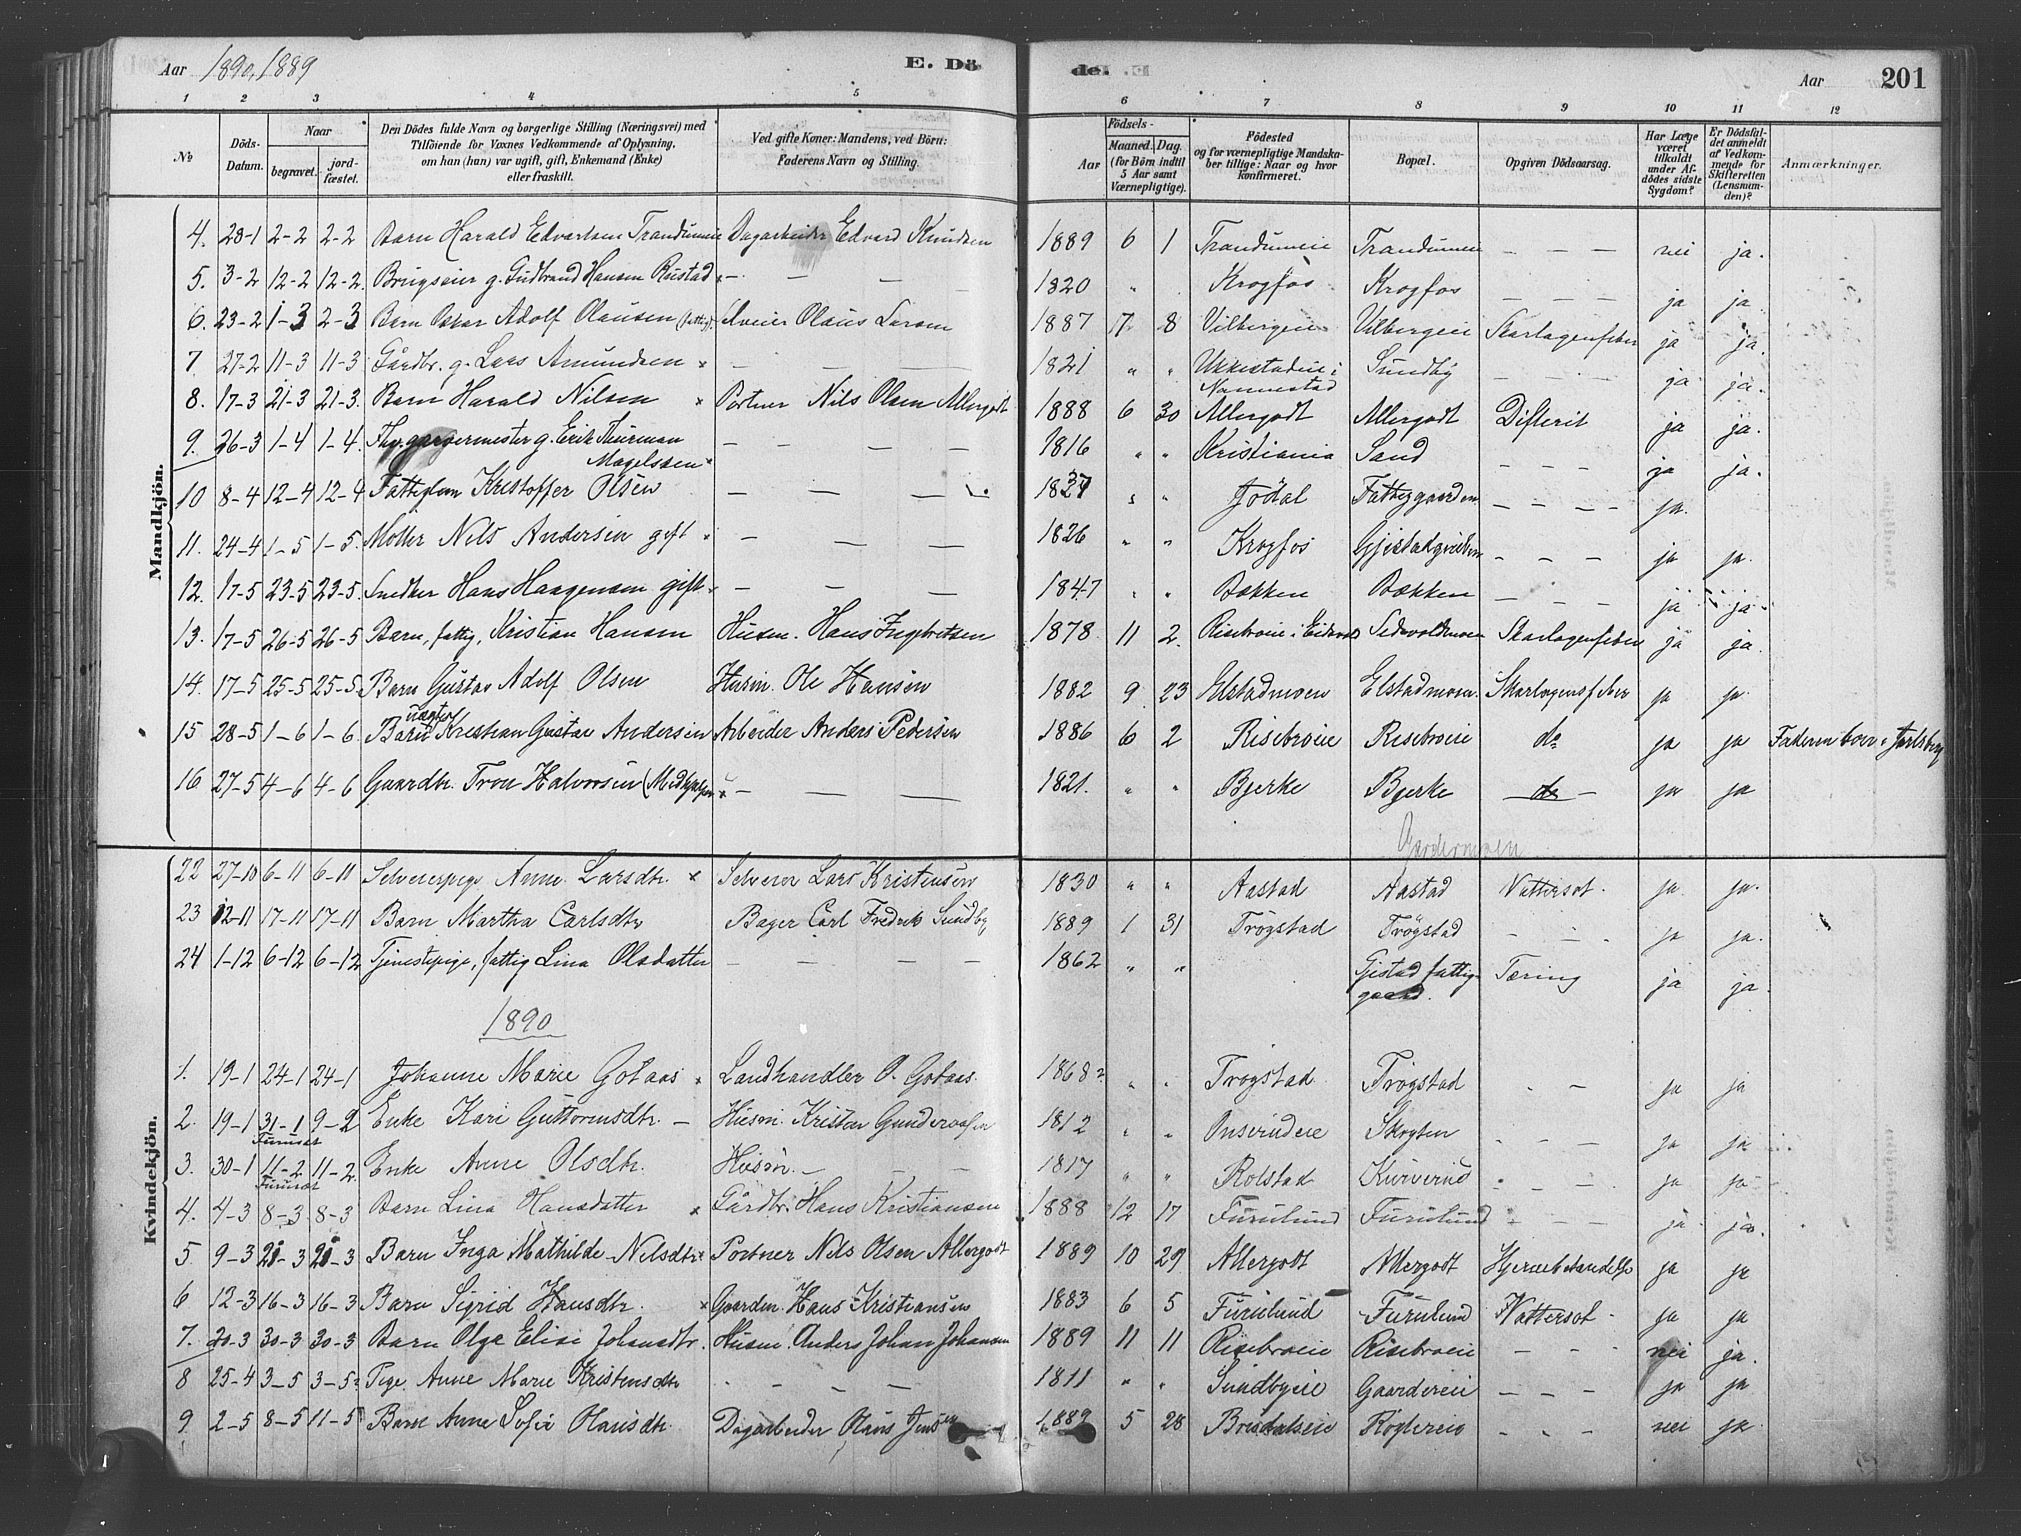 Aar 1890, 1889 E. Dö
de. Aar 201
1 2 3 4 5 6 7 8 9 10 11 12
№ Döds-Datum. Naar begravet. jord-fæstet. Den Dödes fulde Navn og borgerlige Stilling (Næringsvei) med Tilföiende for Voxnes Vedkommende af Oplysning, om han (hun) var ugift, gift, Enkemand (Enke) eller fraskilt. Ved gifte Koner: Mandens, ved Börn: Faderens Navn og Stilling. Födsels- Aar Maaned. Dag. (for Börn indtil 5 Aar samt Værnepligtige). Födested og for værnepligtige Mandskaber tillige: Naar og hvor konfirmeret. Bopæl. Opgiven Dödsaarsag. Har Læge været tilkaldt under Afdödes sidste Sygdom? Er Dödsfaldet anmeldt af Vedkommende for Skifteretten (Lensmanden)? Anmærkninger.
Mandkjön.
4. 28-1 2-2 2-2 Barn Harald Edvartsen Trandumeie Dagarbeider Edvard Knudsen 1889 6 1 Trandumeie Trandumeie – – – nei ja.
5. 3-2 12-2 12-2. Brugseier g. Gudbrand Hansen Rustad – – – 1820 " Krogfos Krogfos – – – ja ja.
6. 23-2 1-3 2-3 Barn Oskar Adolf Olausen (fattig) Olaus Larsen 1887 7 8 Vilbergeie Vilbergeie Skarlagensfeber ja ja.
7. 27-2 11-3 11-3 Gårdbr. g. Lars Amundsen × – – – 1821 " " i Nannestad Sundby – – – ja ja.
8. 17-3 21-3 21-3. Barn Harald Nilsen × Portner Nils Olsen Allergodt 1888 6 30 Allergodt Allergodt Difterit ja ja.
9. 26-3 1-4 1-4. garvermester g. Erik Thurman Magelssen – – – 1816 " " Kristiania Sand – – – ja ja.
10 8-4 12-4 12-4 Fattiglem Kristoffer Olsen – – – 1837 " " Jödal Fattiggaarden – – – – ja.
11. 24-4 1-5 1-5. Møller Nils Andersen gift – – – 1826 " " Krogfos – – – ja ja.
12. 17-5 23-5 23-5. Snedker Hans Haagensen gift – – – 1847 " " Bækken Bækken – – – ja ja
13. 17-5 26-5 26-5 Barn, fattig, Kristian Hansen Husm. Hans Ingebretsen 1878. 11 2. Risebroeie i Eidsvold Skarlagensfeber ja ja.
14. 17-5 25-5 25-5 Barn Gustav Adolf Olsen Husm. Ole Hansen 1882 9 23 Elstadmoen Elstadmoen. Skarlagensfeber ja ja.
uægte
15 28-5 1-6 1-6 Barn Kristian Gustav Andersen Arbeider Anders Pedersen 1886 6 2 Risebroeie Risebroeie do ja ja Faderen boer i Jarlsberg
16. 27-5 4-6 4-6 Gaardbr. Tron Halvorsen – – – 1821. " " Bjerke Bjerke do – ja ja
Gardermoen
Kvindekjön.
22 27-10 6-11 6-11 Selveierpige Anne Larsdtr. × Selveier Lars Kristensen 1830 " " Aastad Aastad Vattersot. ja ja.
23 12-11 17-11 17-11 Barn Martha Carlsdtr Bager Carl Fredrik Sundby 1889 1 31 Trögstad Trögstad – – – ja ja.
24 1-12 6-12 6-12 Tjenestepige, fattig Lina Olsdatter – – – – 1862 " " Gjestad fattig-gaard. Tæring ja ja.
1890
1. 19-1 24-1 24-1 Johanne Marie Gotaas × Landhandler O. Gotaas. 1868 " " Trogstad Trögstad – – ja ja
2. 19-1 31-1 Furuset 9-2 Enke Kari Guttormsdtr. – Husm. Kristen 1812 " " Onsrudeie – – – ja ja
3. 30-1 11-2 Furuset 11-2. Enke Anne Olsdtr. Husm. – – – 1817 " " Rolstad – – – ja ja
4. 4-3 8-3 8-3 Barn Lina Hansdatter × Gårdbr. Hans Kristiansen 1888 12 17 Furulund Furulund – – – ja ja.
5 9-3 21-3 21-3 Barn Inga Mathilde Nilsdtr. Portner Nils Olsen Allergodt 1889 10 29 Allergodt Allergodt ja ja
6 12-3 16-3 16-3 Barn Sigrid Hansdtr. × Gaardm. Hans Kristiansen 1883 6 5 Furulund Furulund Vattersot – ja ja
7. 20-3 30-3 30-3 Barn Olga Elise Johansdtr. Husm. Anders Johan Johansen 1889 11 11 Risebroeie Risebroeie – – – nei ja.
8 25-4 3-5 3-5 Pige Anne Marie Kristensdtr – – – – 1811 " " Sundbyeie Gaardereie – – – ja ja
9. 2-5 8-5 11-5 Barn Anne Sofie Olausdtr. Dagarbeider Olaus Jensen 1889 5 28 – – – nei ja.